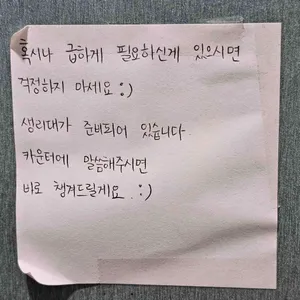 혹시나 급하게 필요하신게 있으시면
걱정하지 마세요 :)
생리대가 준비되어 있습니다.
카운터에 말씀해주시면
바로 챙겨드릴게요. :)